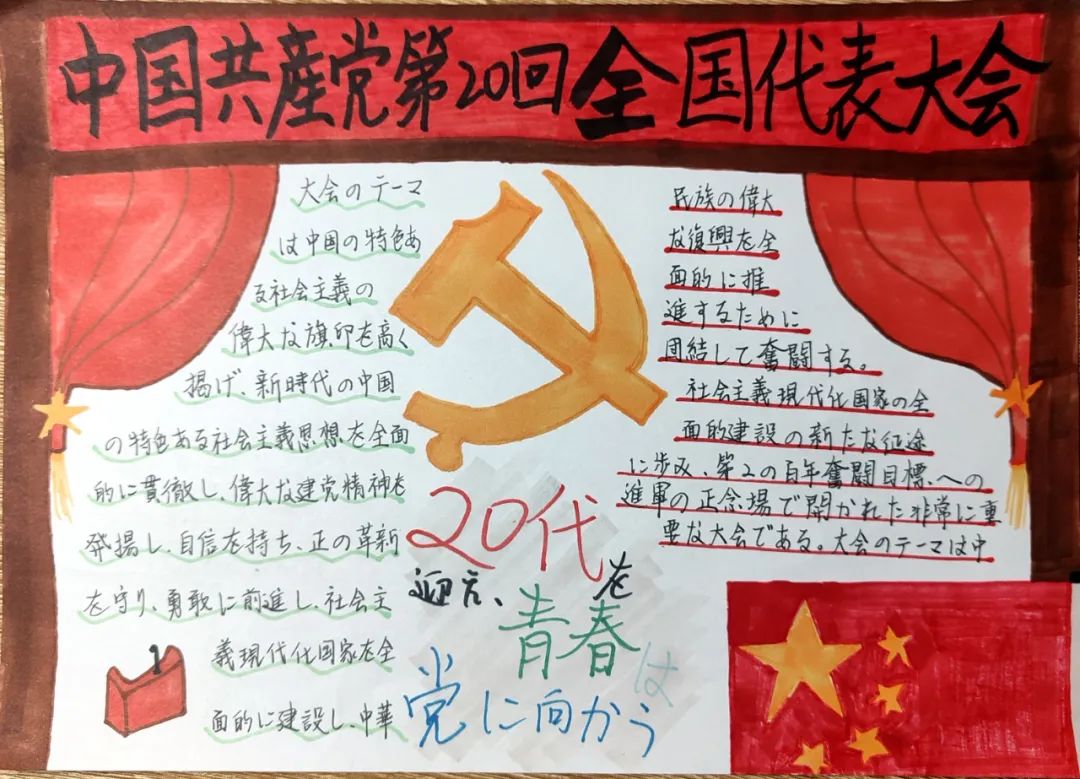 中国共産党第20回全国代表大会
大会のテーマ
は中国の特色あ
る社会主義の
偉大な旗印を高く
掲げ、新時代の中国
の特色ある社会主義思想を全面
的に貫徹し、偉大な建党精神を
発揚し、自信を持ち、正の革新
を守り、勇敢に前進し、社会主
義現代化国家を全
面的に建設し、中華
民族の偉大
な復興を全
面的に推
進するために
団結して奮闘する。
社会主義現代化国家の全
面的建設の新たな征途
に歩み、第2の百年奮闘目標への
進軍の正念場で開かれた非常に重
要な大会である。大会のテーマは中
20代を
迎え、
青春は
党に向かう